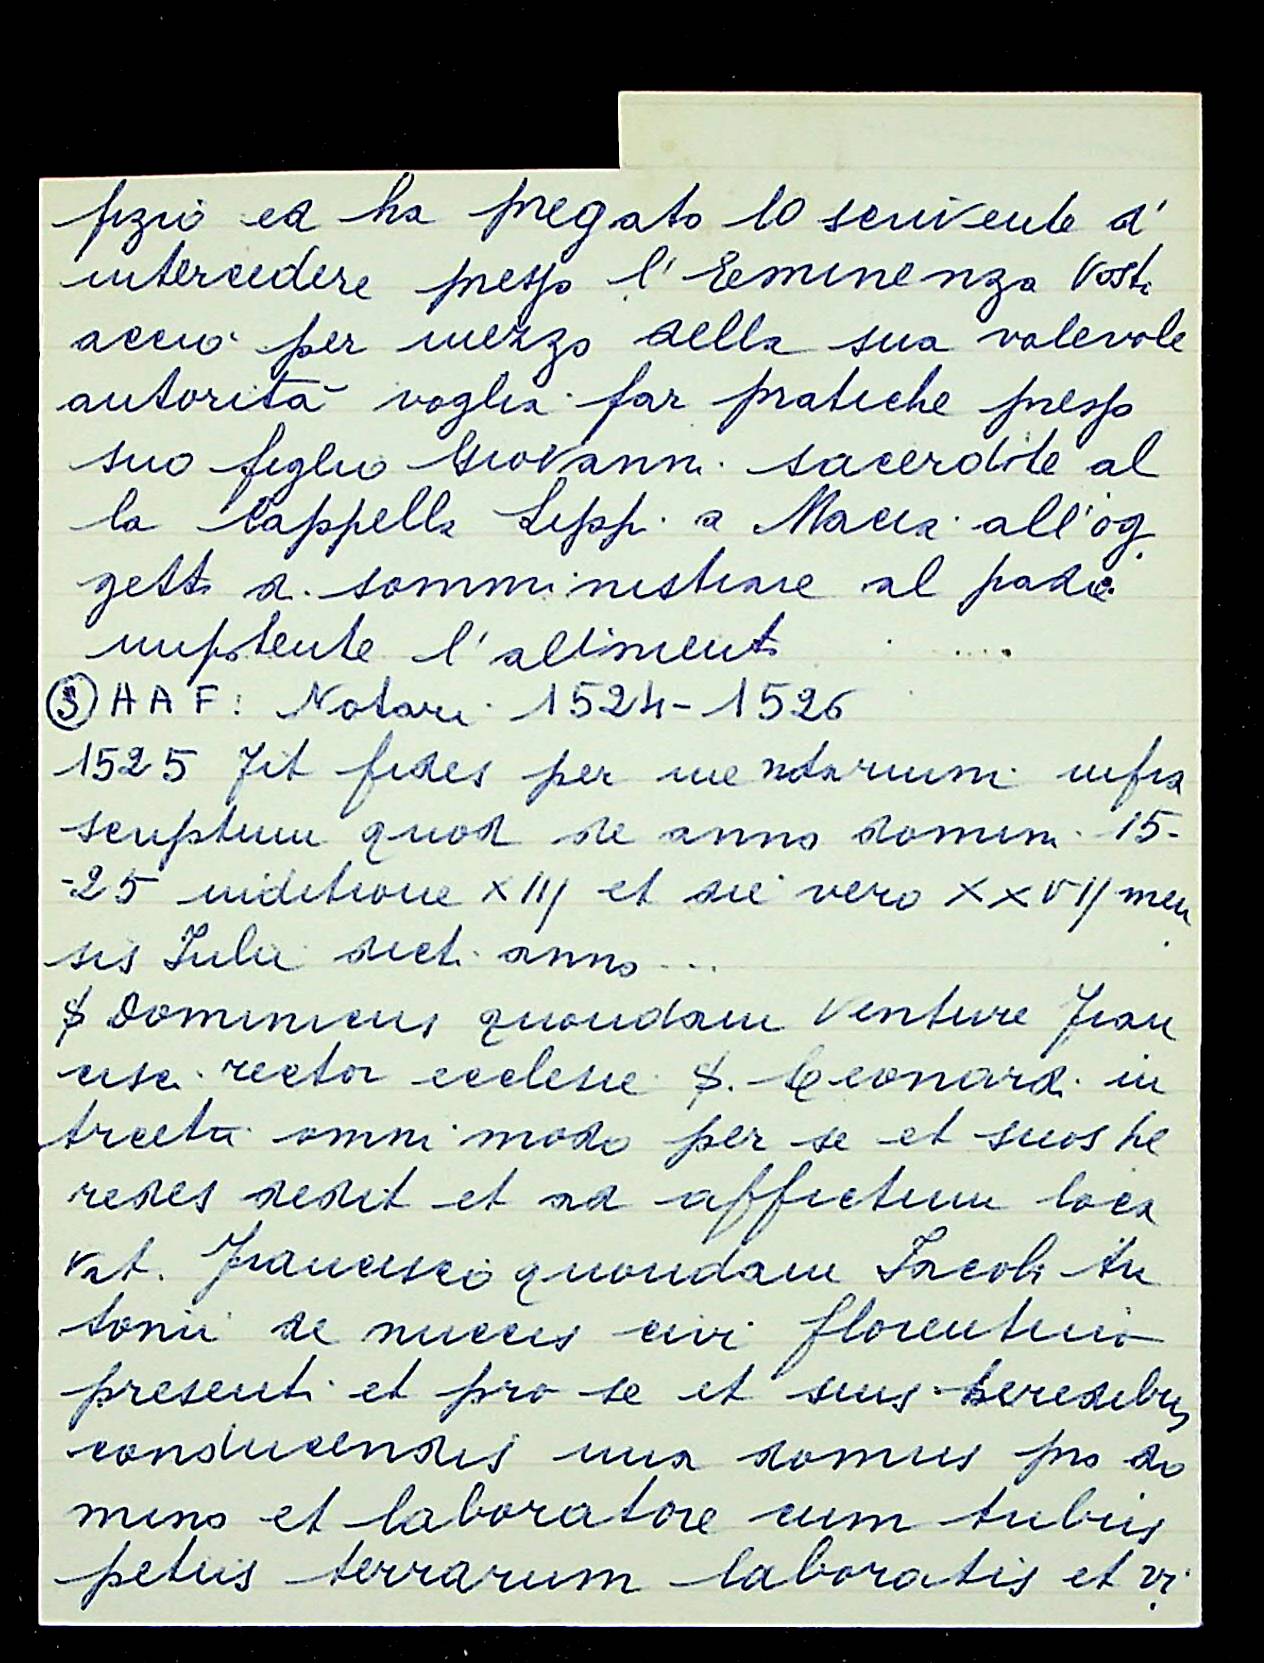 fizio ed ha pregato lo scrivente d'
intercedere presso l'Eminenza Vostr
acciò per mezzo della sua valevole
autorità voglia far pratiche presso
suo figlio Giovanni sacerdote al
la Cappella Lipp. a Maccia all'og
getto di somministrare al padre
impotente l'alimento ....
③ A A F: Notari 1524-1526
1525 Fit fides per me notarium infra
scriptum quod de anno domini 15-
-25 inditione XIII et die vero XXVII men
sis Iulii dicti anno ...
S Dominicus quondam Venture Fran
cisci rector ecclesie S. Leonardi in
omni modo per se et suos he
redes dedit et ad affictum loca
vit. Francisco quondam Iacobi An
tonii de nuccis civi florentino
presenti et pro se et suis heredibus
conducendis una domus pro do
mino et laboratore cum tribus
petiis terrarum laboratis et vi